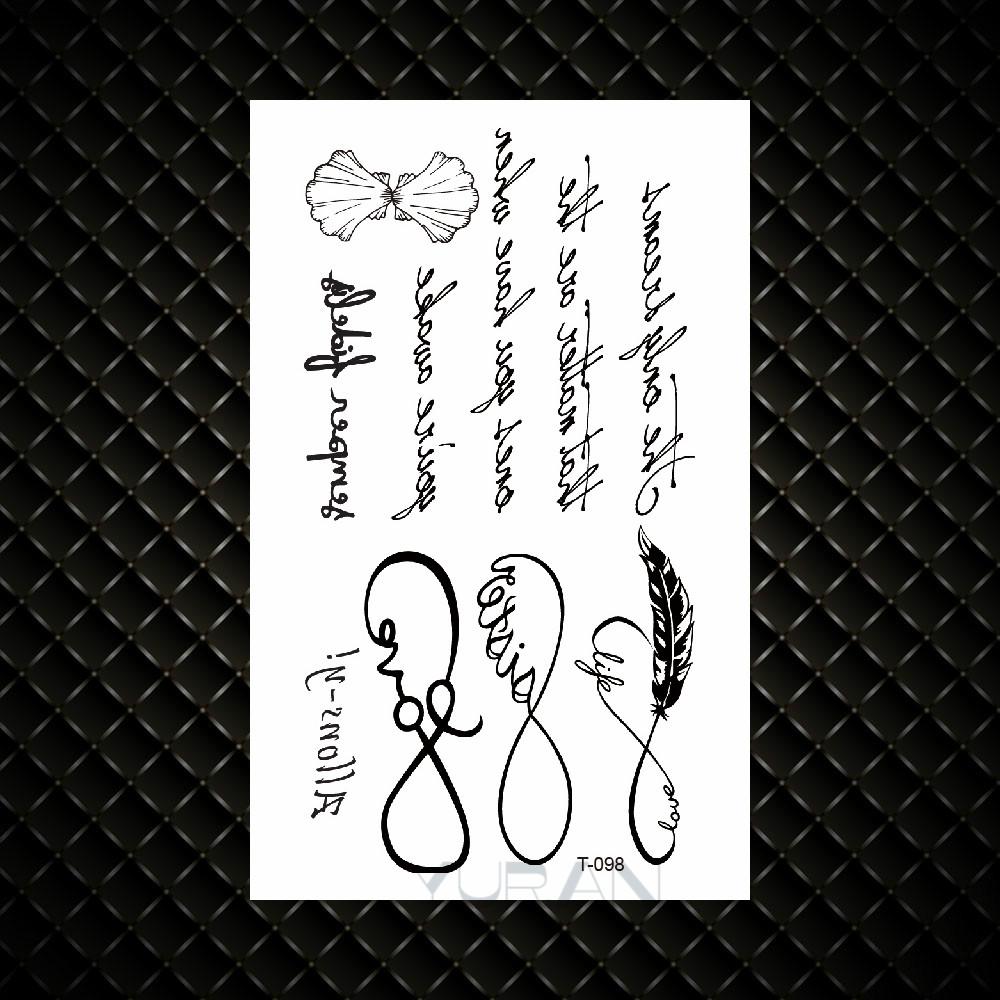 The only dreams
that matter are the
ones you have when
you're awake
semper fidelis
life
love
sister
love
Allons-y!
T-098
YURAN